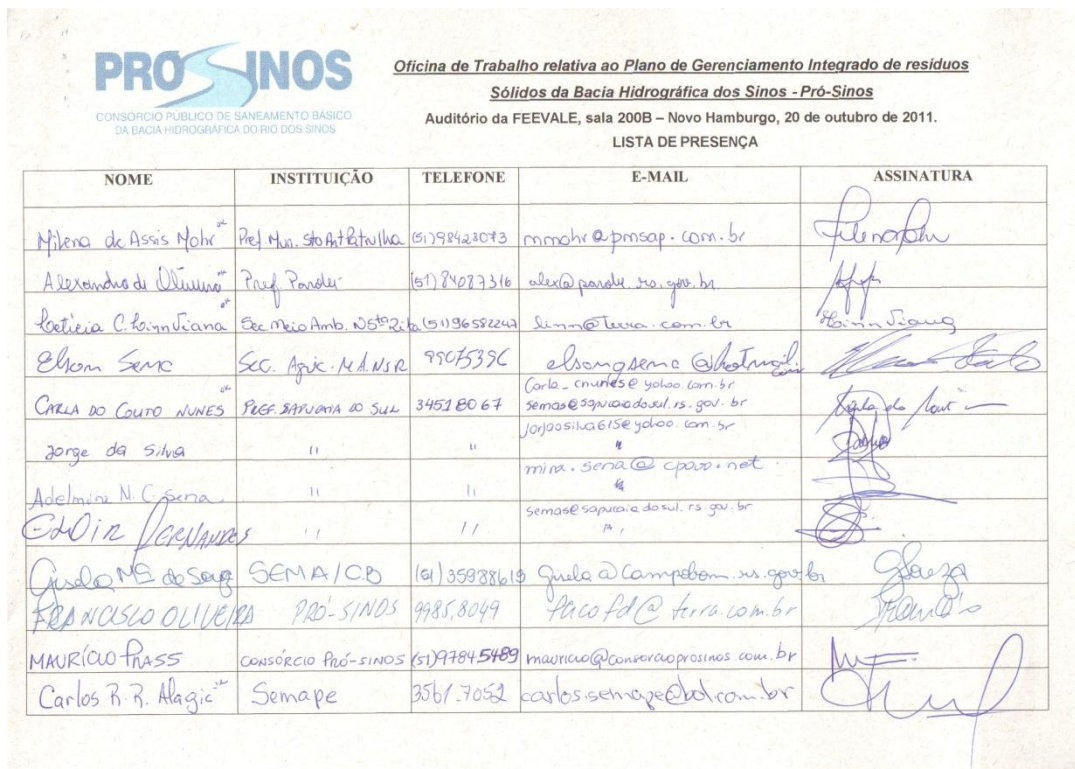 PRÓSINOS
CONSÓRCIO PÚBLICO DE SANEAMENTO BÁSICO
DA BACIA HIDROGRÁFICA DO RIO DOS SINOS
Oficina de Trabalho relativa ao Plano de Gerenciamento Integrado de resíduos
Sólidos da Bacia Hidrográfica dos Sinos - Pró-Sinos
Auditório da FEEVALE, sala 200B – Novo Hamburgo, 20 de outubro de 2011.
LISTA DE PRESENÇA
NOME INSTITUIÇÃO TELEFONE E-MAIL ASSINATURA
Milena de Assis Mohr Pref. Mun. Sto Ant Patrulha (51) 98423073 mmohr@pmsap.com.br
Alexandre de Oliveira Pref (51) 84087316
Letícia C. Linn Viana Sec Meio Amb. N Sta Rita (51) 96582247 linn@terra.com.br Linn Viana
Elson Sena Sec. Agric. M.A. NSR elsongsena@hotmail.com
CARLA DO COUTO NUNES PREF. SAPUCAIA DO SUL 34518067 carla_cnunes@yahoo.com.br
semas@sapucaiadosul.rs.gov.br
Jorge da Silva " " jorjaosilva615@yahoo.com.br
"
Adelmira N. C. Sena " " mira.sena@cpovo.net
"
FERNANDES " " semas@sapucaiadosul.rs.gov.br
"
Gisela Mª de Souza SEMA/CB (51) 35988619 gisela@campobom.rs.gov.br GSouza
FRANCISCO OLIVEIRA PRÓ-SINOS 9985.8049 pacofd@terra.com.br
MAURÍCIO PRASS CONSÓRCIO PRÓ-SINOS (51) 97845489 mauricio@consorcioprosinos.com.br
Carlos R. R. Alagic Semape 3561.7052 carlos.semape@bol.com.br